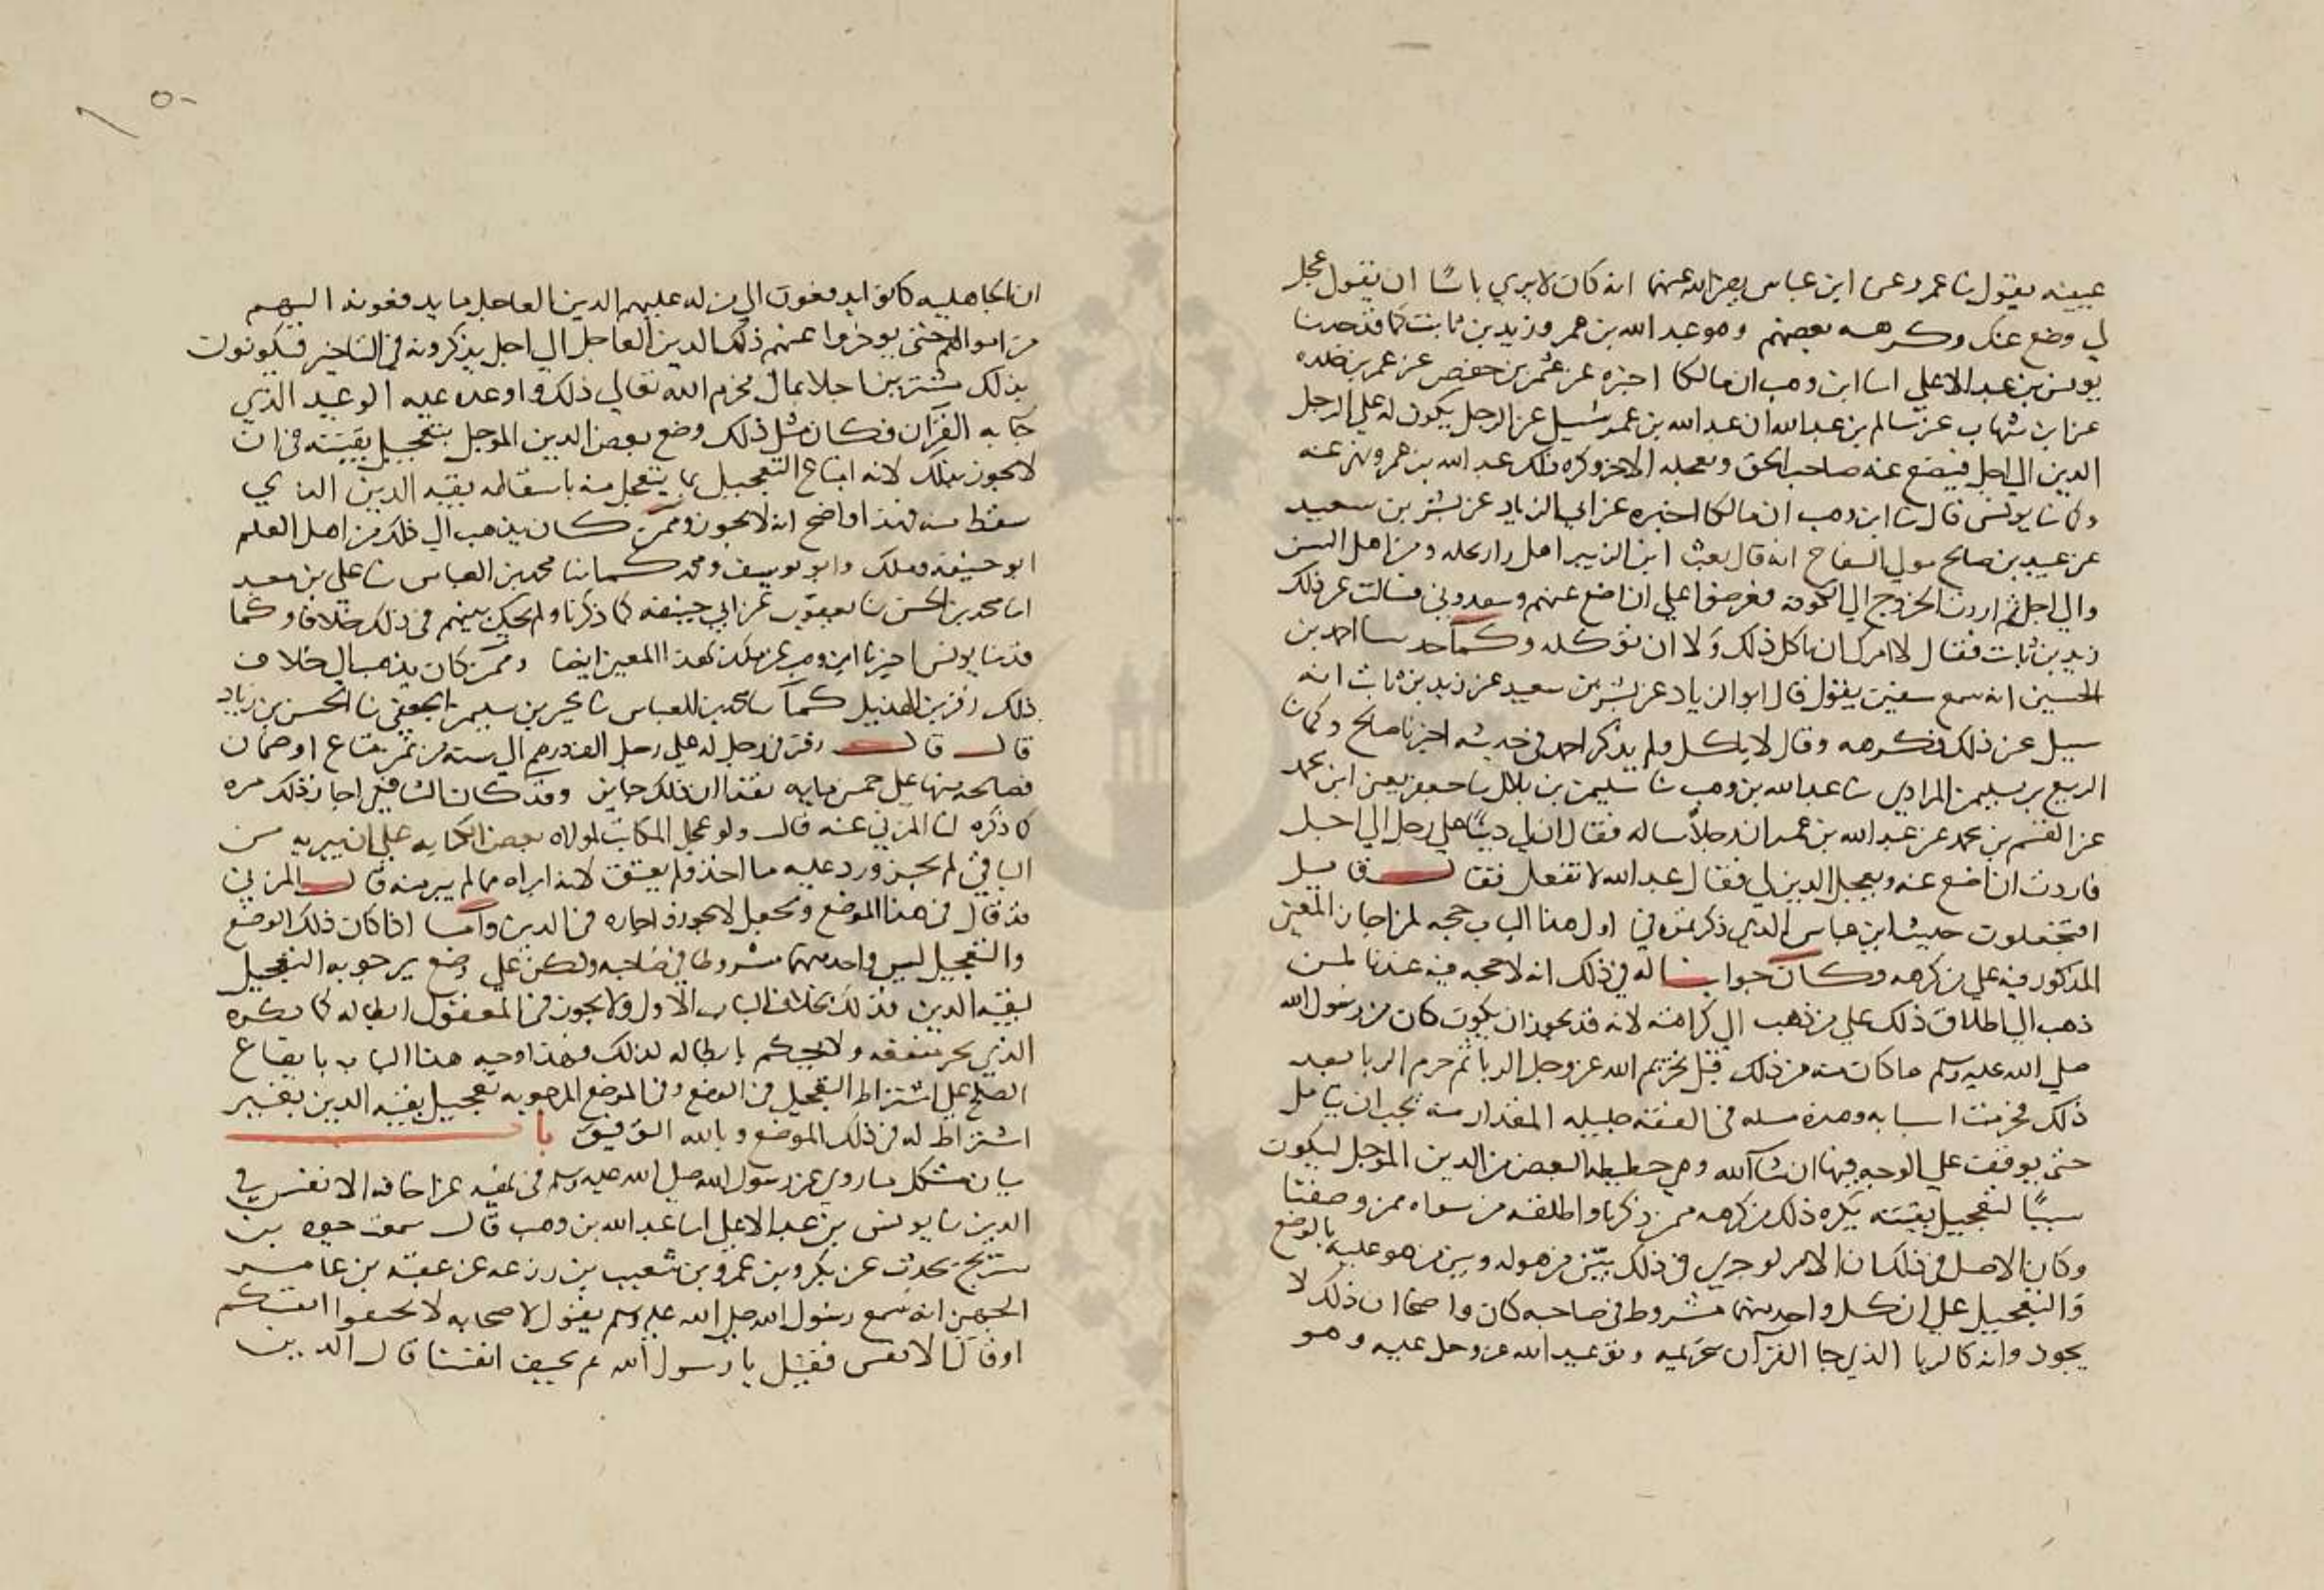 عيينه يقول نا عمرو عن ابن عباس رضي الله عنهما انه كان لا يري باسًا ان يقول عجل
لي وضع عنك وكرهه بعضهم وهو عبد الله بن عمر وزيد بن ثابت كما قد حدثنا
يونس بن عبد الاعلي انا ابن وهب ان مالكا اخبره عن عثمن بن حفص عن عمر بن خلده
عن ابن شهاب عن سالم بن عبد الله ان عبد الله بن عمر سُيل عن الرجل يكون له علي الرجل
الدين الي اجل فيضع عنه صاحب الحق ويعجله الاخر وكره ذلك عبد الله بن عمر ونهي عنه
وكما نا يونس قال نا ابن وهب ان مالكا اخبره عن ابي الزياد عن بشر بن سعيد
عن عبيد بن صالح مولي السفاح انه قال بعث ابن الزبير اهل دار نخله ومن اهل السن
والي اجل ثم اردت الخروج الي الكوفه فعرضوا علي ان اضع عنهم وينقدوني فسالت عن ذلك
زيد بن ثابت فقال لا امرك ان تاكل ذلك وَلا ان توكله وكما حدثنا احمد بن
الحسين انه سمع سفين يقول قال ابو الزياد عن بشر بن سعيد عن زيد بن ثابت انه
سيل عن ذلك فكرهه وقال لا ياكل ولم يذكر احمد في حديثه اخبرنا صالح وكما نا
الربيع بن سليمن المرادي نا عبد الله بن وهب نا سليمن بن بلال نا جعفر يعني ابن محمد
عن القسم بن محمد عن عبد الله بن عمر ان رجلاً ساله فقال ان لي دينًا علي رجل الي اجل
فاردت ان اضع عنه ويعجل الدين لي فقال عبد الله لا تفعل فقال قايل
افتجعلون حديث ابن عباس الذي ذكرتموه في اول هذا الباب حجه لمن اجاز المعني
المذكور فيه علي من كرهه وكان جوابنا له في ذلك انه لا حجه فيه عندنا لمن
ذهب الي اطلاق ذلك علي من ذهب الي كراهته لانه قد يجوز ان يكون كان من رسول الله
صلي الله عليه وسلم ما كان منه من ذلك قبل تحريم الله عز وجل الربا ثم حرم الربا بعد
ذلك فحرمت اسبابه وهذه مسله في الفقه جليله المقدار منه يجب ان يتامل
حتي يوقف علي الوجه فيها ان شا الله وهي حطيطه البعض من الدين الموجل ليكون
سببًا لتعجيل بقيته يكره ذلك من كرهه ممن ذكرنا واطلقه من سواه ممن وصفنا
وكان الاصل في ذلك ان الامر لو جري في ذلك بين من هو له وبين من هو عليه بالوضع
والتعجيل علي ان كل واحد منهما مشروط في صاحبه كان واضحا ان ذلك لا
يجوز وانه كالربا الذي جا القران بتحريمه وتوعيد الله عز وجل عليه وهو
ان الجاهليه كانوا يدفعون الي من له عليهم الدين العاجل ما يدفعونه اليهم
من اموالهم حتي يوخروا عنهم ذلك الدين العاجل الي اجل يذكرونه في التاخير فيكونون
بذلك مشترين اجلا بمال فحرم الله تعالي ذلك واوعد عليه الوعيد الذي
جا به القران فكان مثل ذلك وضع بعض الدين الموجل بتعجيل بقيته في ان
لا يجوز ذلك لانه ابتاع التعجيل بما يتعجل منه باسقاطه بقيه الدين الذي
سقط منه فهذا واضح انه لا يجوز وممن كان يذهب الي ذلك من اهل العلم
ابو حنيفه ومالك وابو يوسف ومحمد كما نا محمد بن العباس نا علي بن معبد
انا محمد بن الحسن نا يعقوب عن ابي حنيفه كما ذكرنا ولم يحك بينهم في ذلك خلافا وكما
قد نا يونس اخبرنا ابن وهب عن مالك بهذا المعني ايضا وممن كان يذهب الي خلاف
ذلك زفر بن الهذيل كما نا محمد بن العباس نا يحيي بن سليمن الجعفي نا الحسن بن زياد
قال قال زفر في رجل له علي رجل الف درهم الي سنه من ثمن متاع او ضمان
فصالحه منها علي خمس مايه نقدا ان ذلك جايز وقد كان الشافعي اجاز ذلك مره
كما ذكره لنا المزني عنه قال ولو عجل المكاتب لمولاه بعض الكتابه علي ان يبريه من
الباقي لم يجز ورد عليه ما اخذ ولم يعتق لانه ابراه مما لم يبر منه قال المزني
قد قال في هذا الموضع وتعجل لا يجوز واجازه في الدين وامّا اذا كان ذلك الوضع
والتعجيل ليس واحد منهما مشروطا في صاحبه ولكن علي وضع يرجو به التعجيل
لبقيه الدين فذلك بخلاف الباب الاول ولا يجوز في المعقول ابطاله كما يكره
الذي يجر منفعه ولا يحكم بابطاله لذلك فهذا وجه هذا الباب بايقاع
الصلح علي اشتراط التعجيل في الوضع وفي الموضع المرجو به تعجيل بقيه الدين بغير
اشتراط له في ذلك الموضع وبالله التوفيق باب
بيان مشكل ما روي عن رسول الله صلي الله عليه وسلم في نهيه عن اخافه الانفس في
الدين نا يونس بن عبد الاعلي انا عبد الله بن وهب قال سمعت حيوه بن
شريح يحدث عن بكر وبن عمرو بن شعيب بن زرعه عن عقبه بن عامر
الجهني انه سمع رسول الله صلي الله عليه وسلم يقول لاصحابه لا تخيفوا انفسكم
او قال الانفس فقيل يا رسول الله بم نخيف انفسنا قال الدين